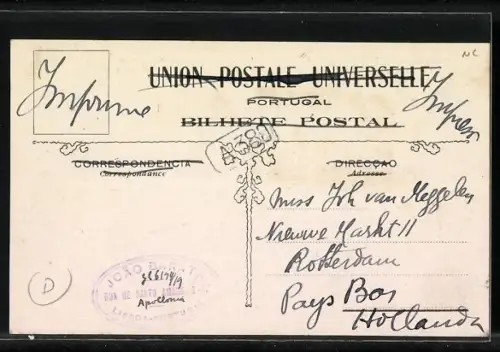 NC
UNION POSTALE UNIVERSELLE
PORTUGAL
BILHETE POSTAL
Imprime
CORRESPONDENCIA
Correspondance
DIRECÇAO
Adresse
Miss Joh van Meggelen
Nieuwe Markt 11
Rotterdam
Pays Bas
Hollanda
JOÃO
RUA DE
LISBOA
Apollonia
D